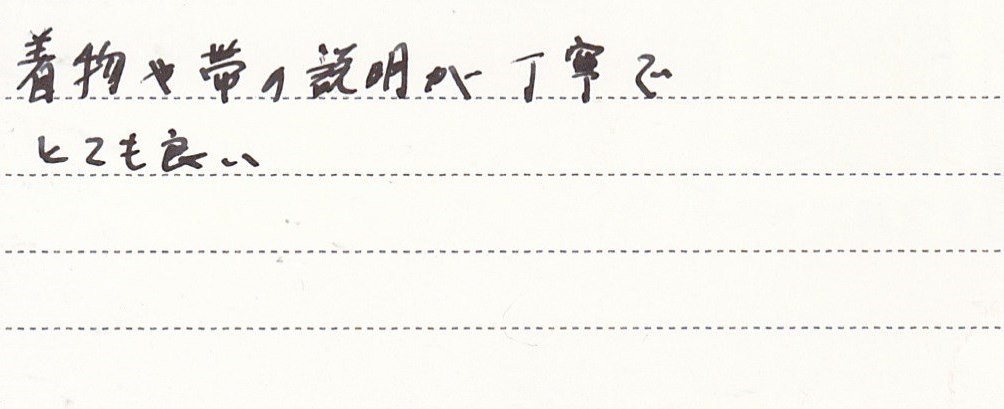 着物や帯の説明が丁寧で
とても良い